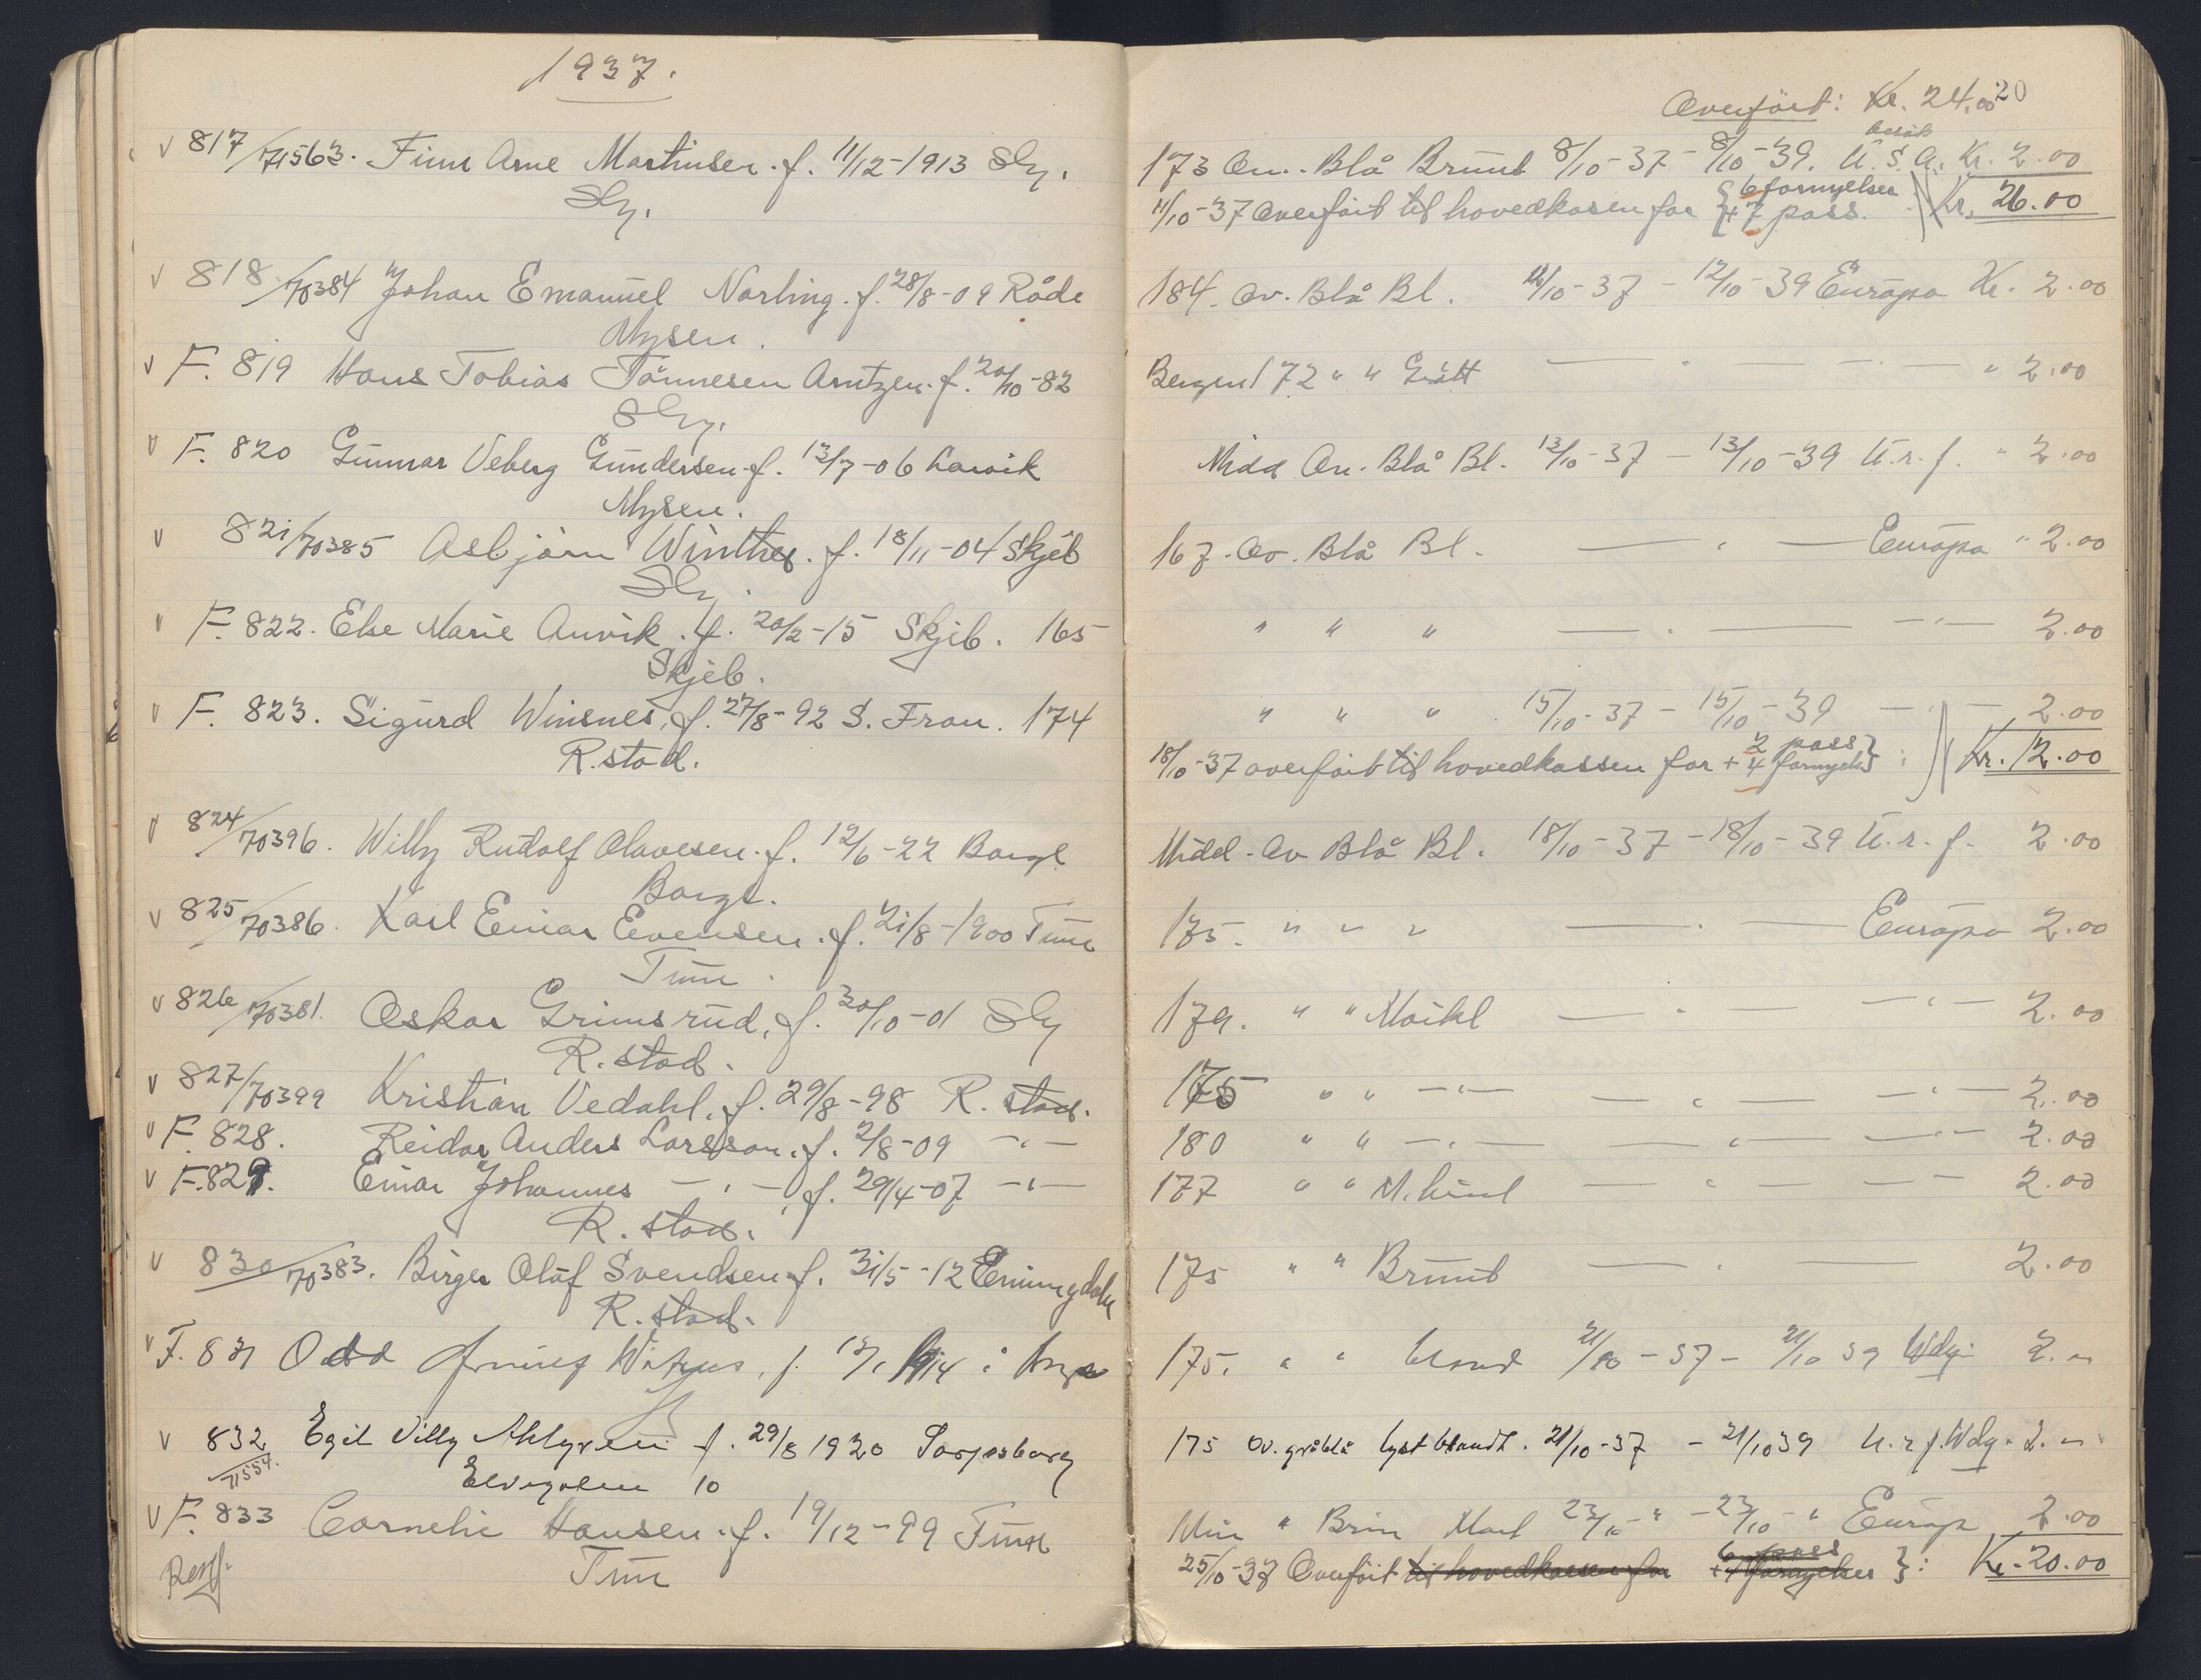 1937.
817/71563. Finn Arne Martinsen. f. 11/12-1913 Sbg.
Sbg.
818/70384 Johan Emanuel Norling. f. 28/8-09 Råde
Mysen.
F. 819 Hans Tobias Tönnesen Arntzen. f. 20/10-82
Sbg.
F. 820 Gunnar Veberg Gundersen f. 13/7-06 Larvik
Mysen.
821/70385 Asbjörn Winther. f. 18/11-04 Skjeb
Sbg.
F. 822. Else Marie Anvik. f. 20/2-15 Skjeb. 165
Skjeb.
F. 823. Sigurd Winsnes, f. 27/8-92 S. Fron. 174
R.stad.
824/70396. Willy Rudolf Olavesen. f. 12/6-22 Borge
Borge.
825/70386. Karl Einar Evensen. f. 21/8-1900 Tune
Tune.
826/70381. Oskar Grimsrud, f. 30/10-01 Sbg
R. stad.
827/70399 Kristian Vedahl, f. 29/8-98 R. stad.
F. 828. Reidar Anders Larsson. f. 2/8-09 -"-
F. 829. Einar Johannes -"- f. 29/4-07 -"-
R. stad.
830/70383. Birger Olaf Svendsen f. 31/5-12 Enningdalen
R. stad.
F. 831 Odd f. 1914 i
832/71554. Egil Villy Ahlgren f. 29/8 1920 Sarpsborg
10
F. 833 Cornelie Hansen. f. 19/12-99 Tune
Tune
Overført: Kr. 24.00 20
besøk
173 Ov. Blå Brunt 8/10-37 - 8/10-39. U.S.A. Kr. 2.00
11/10-37 Overført til hovedkassen for { 6 fornyelser + 7 pass. Kr. 26.00
184. Ov. Blå Bl. 12/10-37 - 12/10-39 Europa Kr. 2.00
Bergen 172 " " Grått — " — — " — " 2.00
Midd Ov. Blå Bl. 13/10-37 - 13/10-39 U.r.f. " 2.00
167. Ov. Blå Bl. — " — Europa " 2.00
" " " — " — — " — 2.00
" " " 15/10-37 - 15/10-39 — " — 2.00
18/10-37 overført til hovedkassen for 2 pass + 4 fornyels } : Kr. 12.00
Midd. Ov Blå Bl. 18/10-37 - 18/10-39 U.r.f. 2.00
175. " " " — " — Europa 2.00
179. " " Mørkt — " — — " — 2.00
175 " " — " — — " — — " — 2.00
180 " " — " — — " — — " — 2.00
177 " " M. brunt — " — — " — 2.00
175 " " Brunt — " — 2.00
175. " " blond 21/10-37 - 21/10 39 Wdg. 2.-
175 Ov. gråblå lyst blondt. 21/10-37 - 21/10 39 U.r.f. Wdg. 2.-
Min " Brun Mørk 23/10-" - 23/10-" Europa 2.00
25/10-37 Overført til hovedkassen for 6 pass + 4 fornyelser } : Kr. 20.00